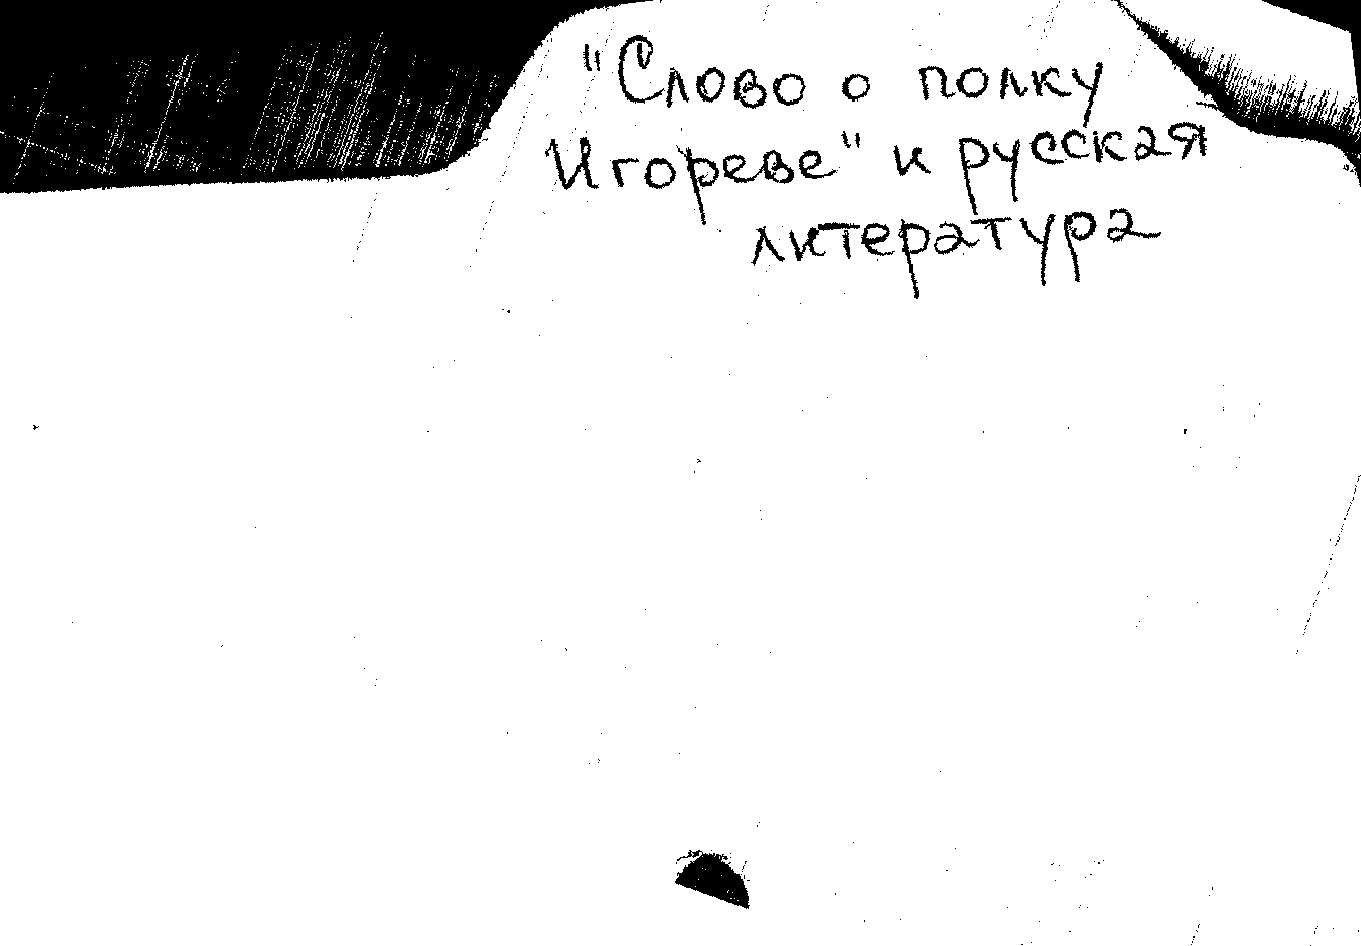 "Слово о полку
Игореве" и русская
литература